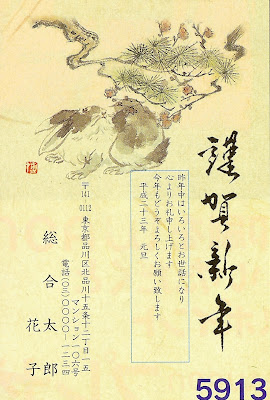 謹賀新年
昨年中はいろいろとお世話になり
心よりお礼申し上げます
今年もどうぞよろしくお願い致します
平成二十三年　元旦
〒141
0112
東京都品川区北品川十五条十二丁目一五
マンション一〇六号
電話(〇三)〇〇〇〇-一二三四
総合太郎
花子
5913